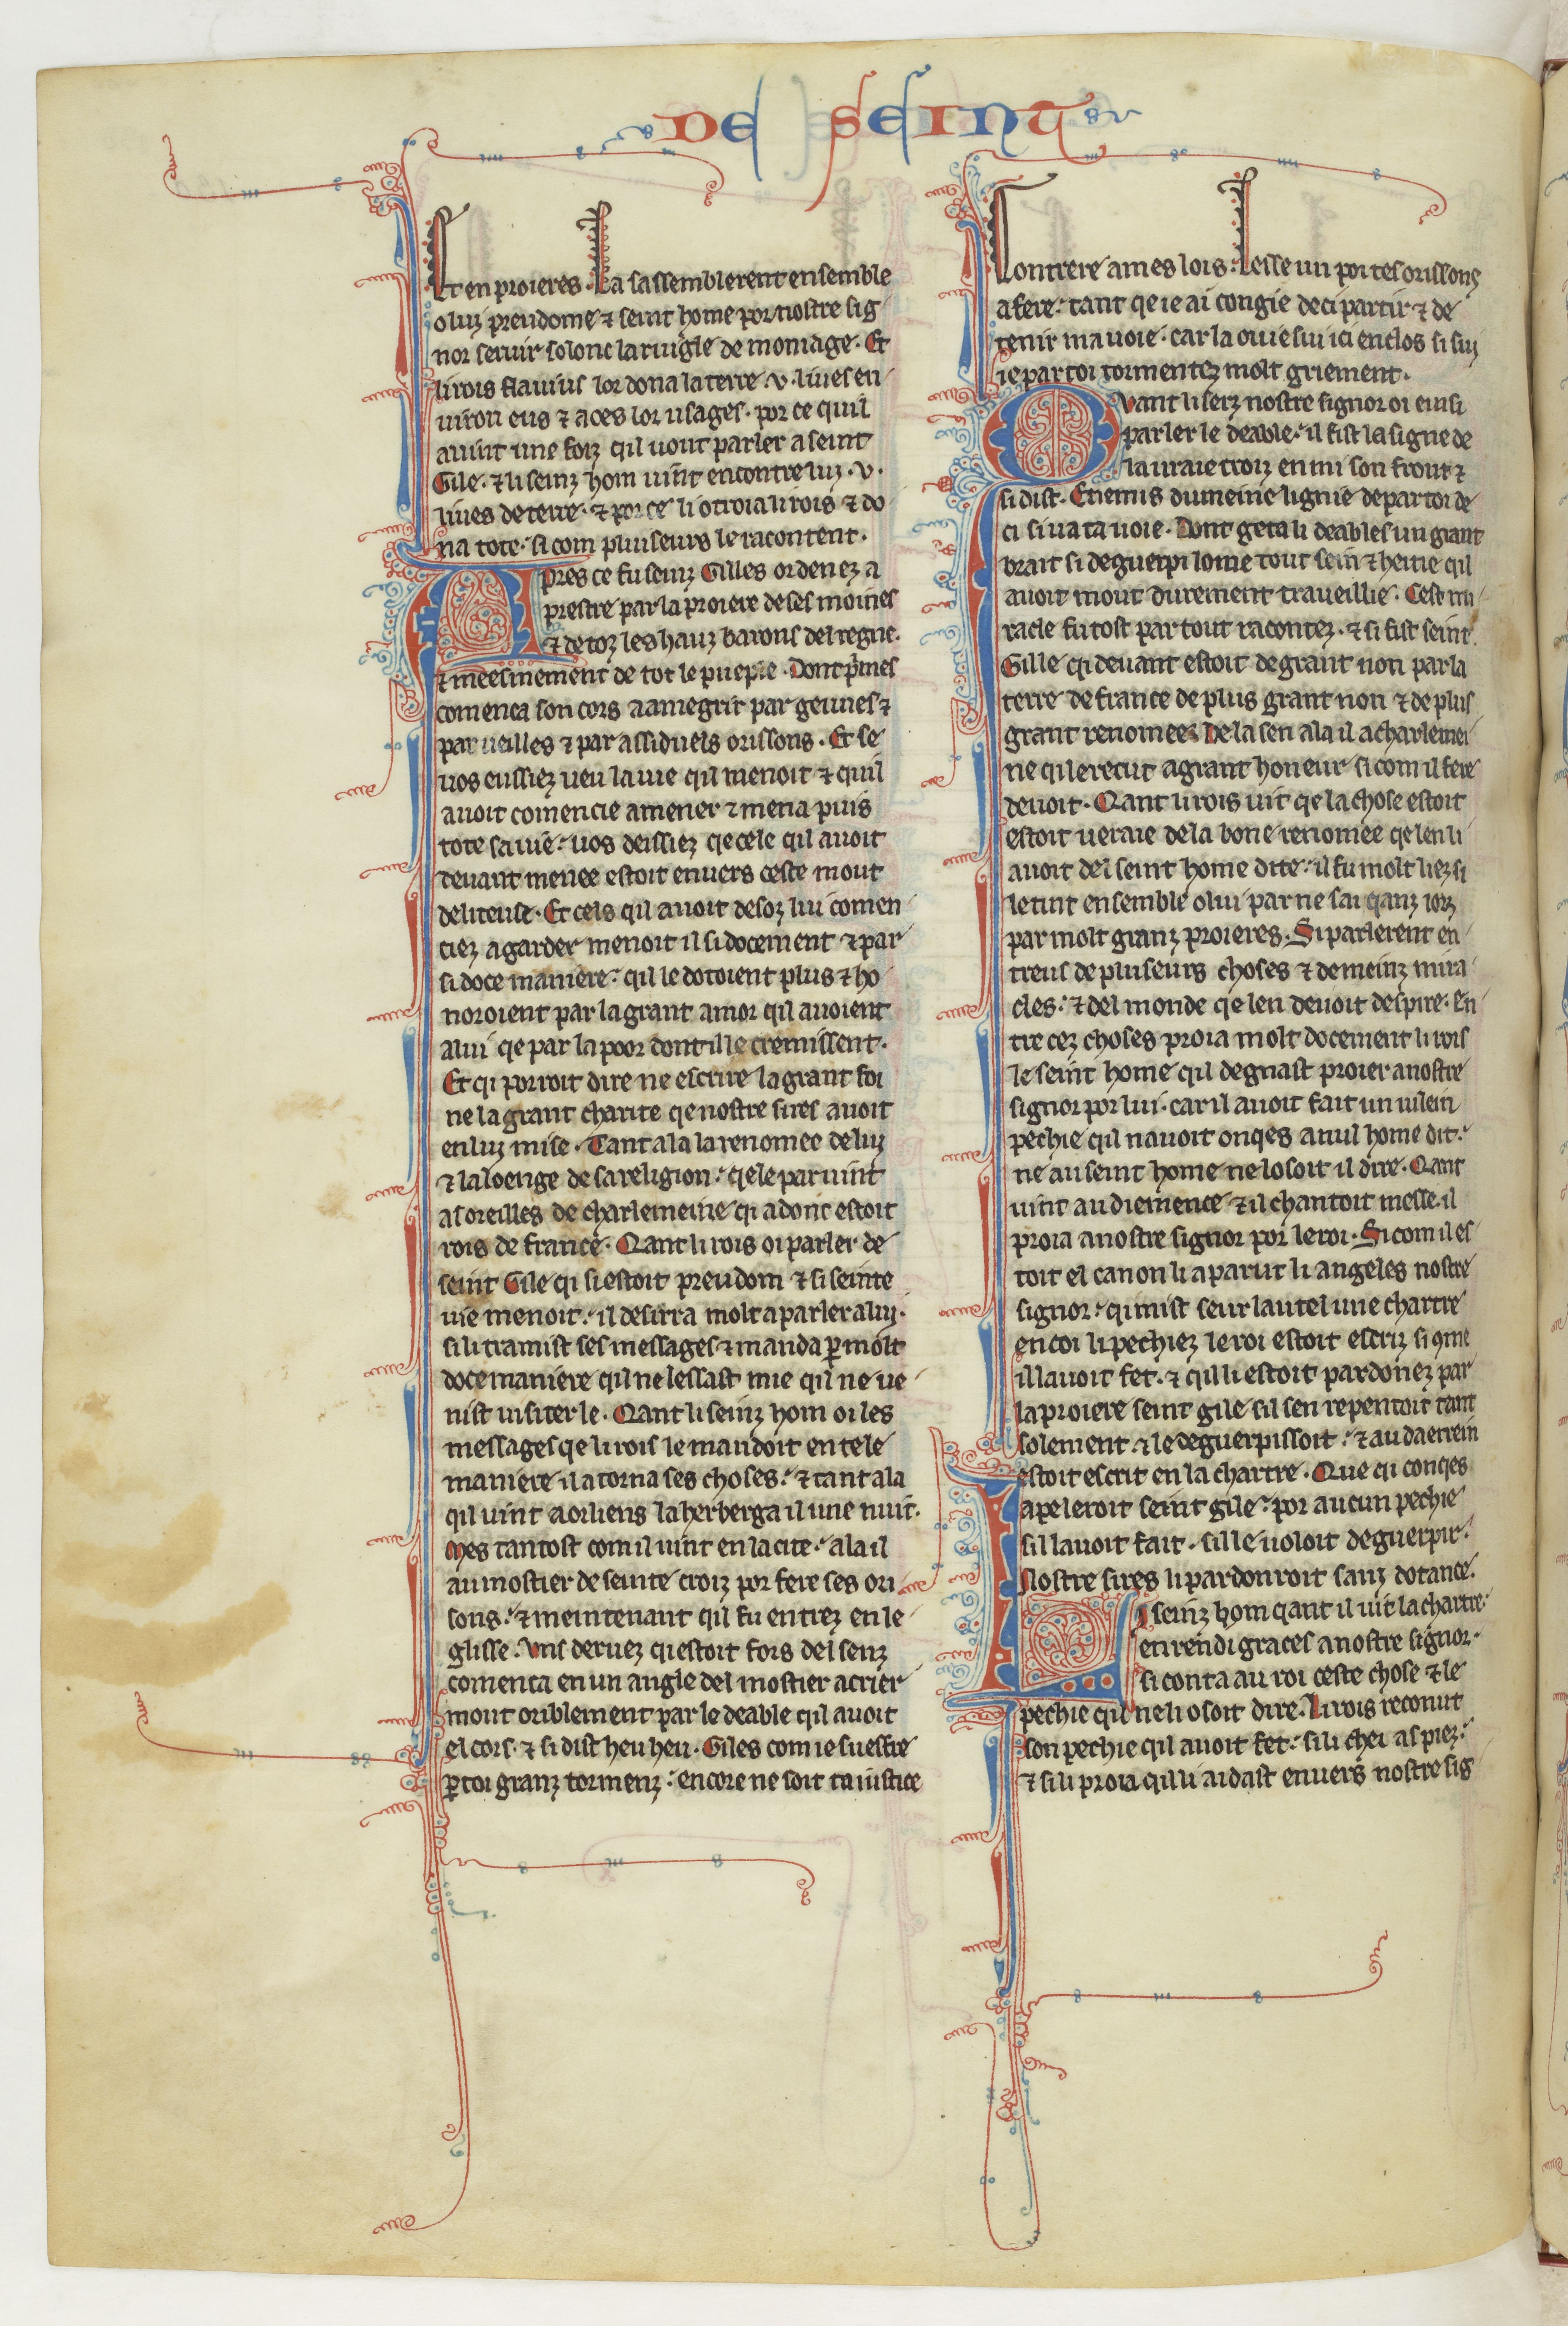 DE SEINT
Et en proieres. La sassemblerent ensemble
o luy preudome ⁊ seint home por nostre sig
nor seruir solonc la ruigle de moniage. Et
li rois flauius lor dona la terre .v. liues en
uiron eus ⁊ a ces lor usages. por ce quil
auint une foiz qil uout parler a seint
Gile. ⁊ li seinz hom uint encontre luy .v.
liues de terre. ⁊ por ce li otroia li rois ⁊ do
na tote. si com pluiseurs le racontent.
Apres ce fu seinz Gilles ordenez a
prestre par la proiere de ses moines
⁊ de toz les hauz barons del regne.
⁊ meesmement de tot le pueple. Dont pͥmes
comenca son cors a amegrir par geunes ⁊
par ueilles ⁊ par assiduels orissons. Et se
uos eussiez ueu la uie qil menoit ⁊ quil
auoit comencie a mener ⁊ mena puis
tote sa uie. uos deissiez qe cele qil auoit
deuant menee estoit enuers ceste mout
deliteuse. Et cels qil auoit desoz lui comen
ciez a garder menoit il si docement ⁊ par
si doce maniere. qil le dotoient plus ⁊ ho
noroient par la grant amor qil auoient
a lui qe par la poor dont il le cremissent.
Et qi porroit dire ne escrire la grant foi
ne la grant charite qe nostre sires auoit
en luy mise. Tant ala la renomee de luy
⁊ la loenge de sa religion. qele paruint
as oreilles de charlemeine qi adonc estoit
rois de france. Qant li rois oi parler de
seint Gile qi si estoit preudom ⁊ si seinte
uie menoit. il desirra molt a parler a luy.
si li tramist ses messages ⁊ manda ꝑ molt
doce maniere qil ne lessast mie qil ne ue
nist uisiter le. Qant li seinz hom oi les
messages qe li rois le mandoit en tele
maniere il atorna ses choses. ⁊ tant ala
qil uint a orliens la herberga il une nuit.
Mes tantost com il uint en la cite. ala il
au mostier de seinte croiz por fere ses ori
sons. ⁊ meintenant qil fu entrez en le
glisse. Uns deruez qi estoit fors del senz
comenca en un angle del mostier a crier
mout oriblement par le deable qil auoit
el cors. ⁊ si dist heu heu. Giles com ie suefre
ꝑ toi granz tormenz. encore ne soit ta iustice
Contrere a mes lois. Lesse un poi tes orissons
a fere. tant qe ie ai congie de ci partir ⁊ de
tenir ma uoie. car la ou ie sui ici enclos si sui
ie par toi tormentez molt griement.
Quant li seiz nostre signor oi einsi
parler le deable. il fist la signe de
la uraie croiz en mi son front ⁊
si dist. Enemis du meine lignie depar toi de
ci si ua ta uoie. Dont geta li deables un grant
brait si deguerpi lome tout sein ⁊ heitie qil
auoit mout durement traueillie. Cest mi
racle fu tost par tout racontez. ⁊ si fist seint
Gille qi deuant estoit de grant non par la
terre de france de plus grant non ⁊ de plus
grant renomee. De la sen ala il a charlemei
ne qi le recut a grant honeur si com il fere
deuoit. Qant li rois uit qe la chose estoit
estoit ueraie de la bone renomee qe len li
auoit del seint home dite. il fu molt liez si
le tint ensemble o lui par ne sai qanz iorz
par molt granz proieres. Si parlerent en
treus de pluiseurs choses ⁊ de meinz mira
cles. ⁊ del monde qe len deuoit despire. En
tre cez choses proia molt docement li rois
le seint home qil degnast proier a nostre
signor por lui. car il auoit fait un uilein
pechie qil nauoit onqes a nul home dit.
ne au seint home ne losoit il dire. Qant
uint au diemence ⁊ il chantoit messe. il
proia a nostre signor por le roi. Si com il es
toit el canon li aparut li angeles nostre
signor. qi mist seur lautel une chartre
en coi li pechiez le roi estoit escriz si ꝯme
il lauoit fet. ⁊ qil li estoit pardonez par
la proiere seint gile sil sen repentoit tant
solement. ⁊ le deguerpissoit. ⁊ au daerrein
estoit escrit en la chartre. Que qi conqes
apeleroit seint gile. por aucun pechie
sil lauoit fait. sil le uoloit deguerpir.
Nostre sires li pardonroit sanz dotance.
Li seinz hom qant il uit la chartre.
en rendi graces a nostre signor.
si conta au roi ceste chose ⁊ le
pechie qil ne li osoit dire. Li rois reconut
son pechie qil auoit fet. si li chei as piez.
⁊ si li proia qil li aidast enuers nostre sig